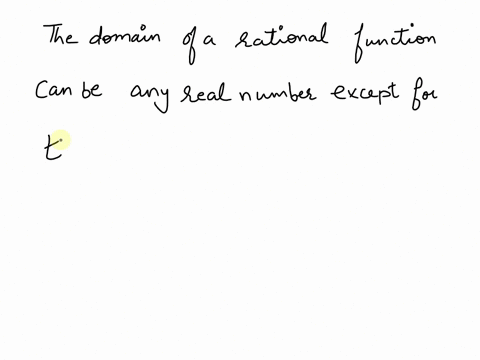 The domain of a rational function
Can be any real number except for
t